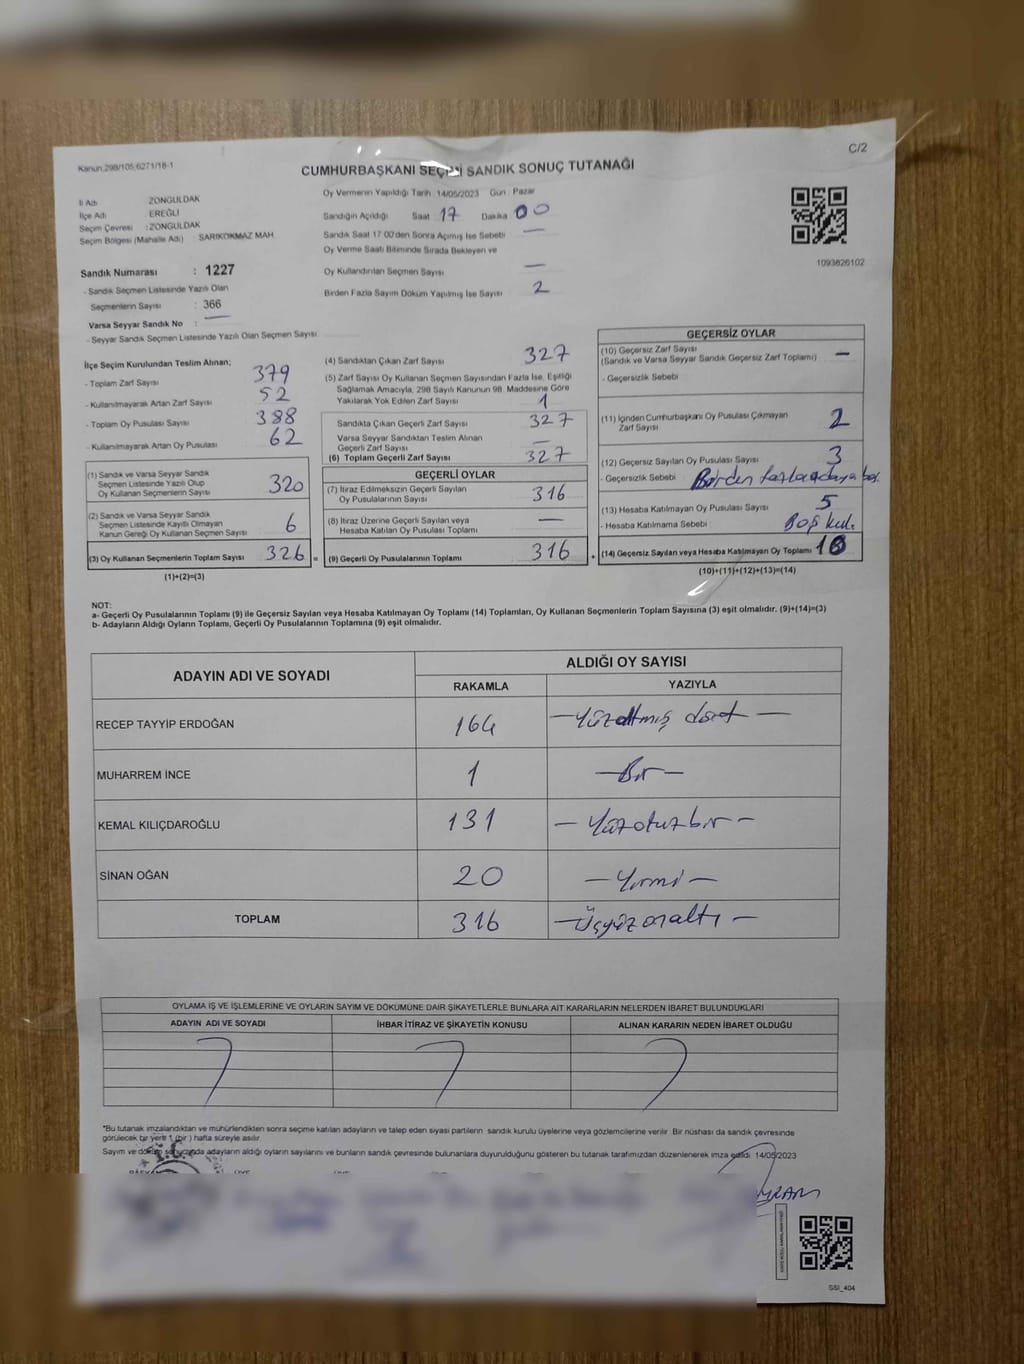 Kanun:298/105;6271/18-1
C/2
CUMHURBAŞKANI SEÇİMİ SANDIK SONUÇ TUTANAĞI
İl Adı ZONGULDAK
İlçe Adı EREĞLİ
Seçim Çevresi : ZONGULDAK
Seçim Bölgesi (Mahalle Adı) : SARIKOKMAZ MAH.
Sandık Numarası : 1227
- Sandık Seçmen Listesinde Yazılı Olan
Seçmenlerin Sayısı : 366
Varsa Seyyar Sandık No :
- Seyyar Sandık Seçmen Listesinde Yazılı Olan Seçmen Sayısı
Oy Vermenin Yapıldığı Tarih 14/05/2023 Gün Pazar
Sandığın Açıldığı Saat 17 Dakika 00
Sandık Saat 17:00'den Sonra Açılmış İse Sebebi —
Oy Verme Saati Bitiminde Sırada Bekleyen ve
Oy Kullandırılan Seçmen Sayısı —
Birden Fazla Sayım Döküm Yapılmış İse Sayısı 2
1093826102
İlçe Seçim Kurulundan Teslim Alınan;
- Toplam Zarf Sayısı 379
- Kullanılmayarak Artan Zarf Sayısı 52
- Toplam Oy Pusulası Sayısı 388
- Kullanılmayarak Artan Oy Pusulası 62
(1) Sandık ve Varsa Seyyar Sandık
Seçmen Listesinde Yazılı Olup
Oy Kullanan Seçmenlerin Sayısı 320
(2) Sandık ve Varsa Seyyar Sandık
Seçmen Listesinde Kayıtlı Olmayan
Kanun Gereği Oy Kullanan Seçmen Sayısı 6
(3) Oy Kullanan Seçmenlerin Toplam Sayısı 326 =
(1)+(2)=(3)
(4) Sandıktan Çıkan Zarf Sayısı 327
(5) Zarf Sayısı Oy Kullanan Seçmen Sayısından Fazla İse, Eşitliği
Sağlamak Amacıyla, 298 Sayılı Kanunun 98. Maddesine Göre
Yakılarak Yok Edilen Zarf Sayısı 1
Sandıkta Çıkan Geçerli Zarf Sayısı 327
Varsa Seyyar Sandıktan Teslim Alınan
Geçerli Zarf Sayısı —
(6) Toplam Geçerli Zarf Sayısı 327
GEÇERLİ OYLAR
(7) İtiraz Edilmeksizin Geçerli Sayılan
Oy Pusulalarının Sayısı 316
(8) İtiraz Üzerine Geçerli Sayılan veya
Hesaba Katılan Oy Pusulası Toplamı —
(9) Geçerli Oy Pusulalarının Toplamı 316 +
GEÇERSİZ OYLAR
(10) Geçersiz Zarf Sayısı —
(Sandık ve Varsa Seyyar Sandık Geçersiz Zarf Toplamı)
- Geçersizlik Sebebi
(11) İçinden Cumhurbaşkanı Oy Pusulası Çıkmayan
Zarf Sayısı 2
(12) Geçersiz Sayılan Oy Pusulası Sayısı 3
- Geçersizlik Sebebi Birden fazla adaya
(13) Hesaba Katılmayan Oy Pusulası Sayısı 5
- Hesaba Katılmama Sebebi Boş kul.
(14) Geçersiz Sayılan veya Hesaba Katılmayan Oy Toplamı 10
(10)+(11)+(12)+(13)=(14)
NOT:
a- Geçerli Oy Pusulalarının Toplamı (9) ile Geçersiz Sayılan veya Hesaba Katılmayan Oy Toplamı (14) Toplamları, Oy Kullanan Seçmenlerin Toplam Sayısına (3) eşit olmalıdır. (9)+(14)=(3)
b- Adayların Aldığı Oyların Toplamı, Geçerli Oy Pusulalarının Toplamına (9) eşit olmalıdır.
ADAYIN ADI VE SOYADI ALDIĞI OY SAYISI
RAKAMLA YAZIYLA
RECEP TAYYİP ERDOĞAN 164 — Yüzaltmış dört —
MUHARREM İNCE 1 — Bir —
KEMAL KILIÇDAROĞLU 131 — Yüzotuzbir —
SİNAN OĞAN 20 — Yirmi —
TOPLAM 316 — Üçyüzonaltı —
OYLAMA İŞ VE İŞLEMLERİNE VE OYLARIN SAYIM VE DÖKÜMÜNE DAİR ŞİKAYETLERLE BUNLARA AİT KARARLARIN NELERDEN İBARET BULUNDUKLARI
ADAYIN ADI VE SOYADI İHBAR İTİRAZ VE ŞİKAYETİN KONUSU ALINAN KARARIN NEDEN İBARET OLDUĞU
*Bu tutanak imzalandıktan ve mühürlendikten sonra seçime katılan adayların ve talep eden siyasi partilerin sandık kurulu üyelerine veya gözlemcilerine verilir. Bir nüshası da sandık çevresinde
görülecek bir yere 1 (bir) hafta süreyle asılır.
Sayım ve döküm sonucunda adayların aldığı oyların sayılarını ve bunların sandık çevresinde bulunanlara duyurulduğunu gösteren bu tutanak tarafımızdan düzenlenerek imza edildi. 14/05/2023
T.C.
SSI_404